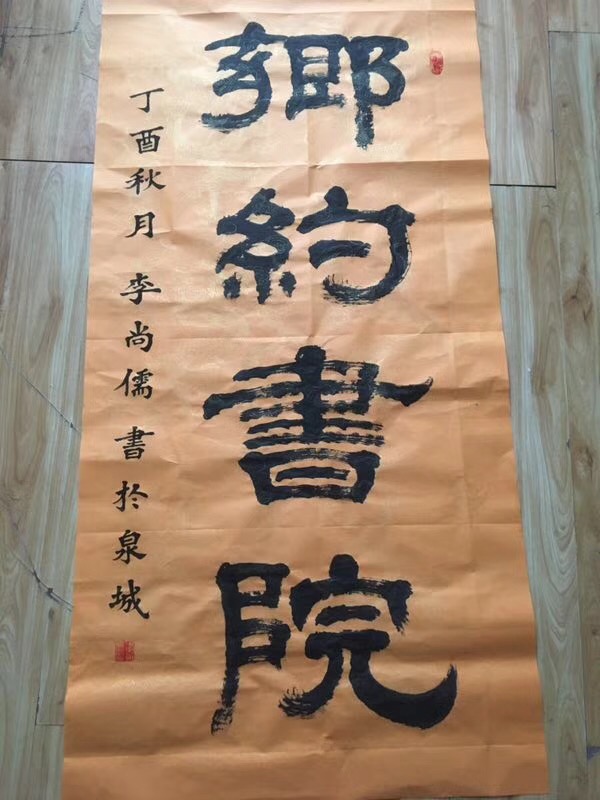 鄉約書院
丁酉秋月 李尚儒書於泉城